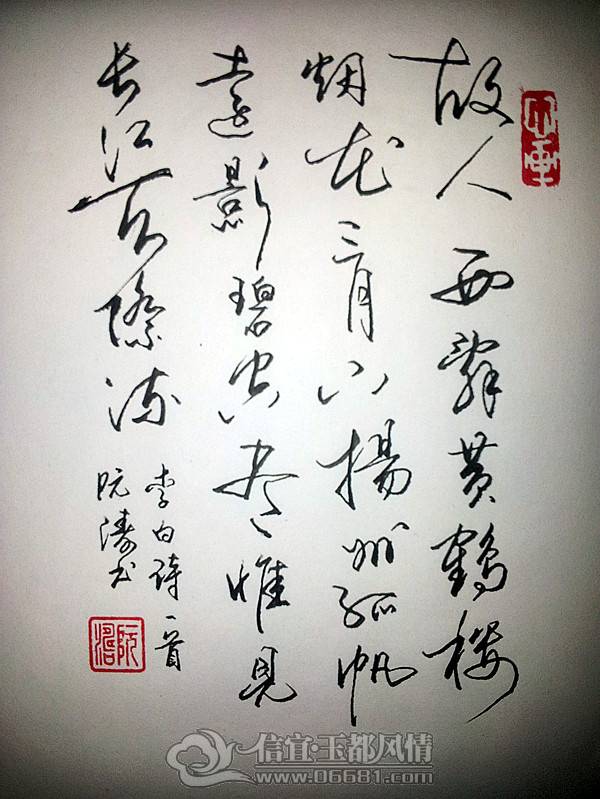 故人西辞黄鹤楼
烟花三月下揚州孤帆
遠影碧空尽惟見
长江天際流
李白詩一首
阮涛书
信宜·玉都风情
www.06681.com